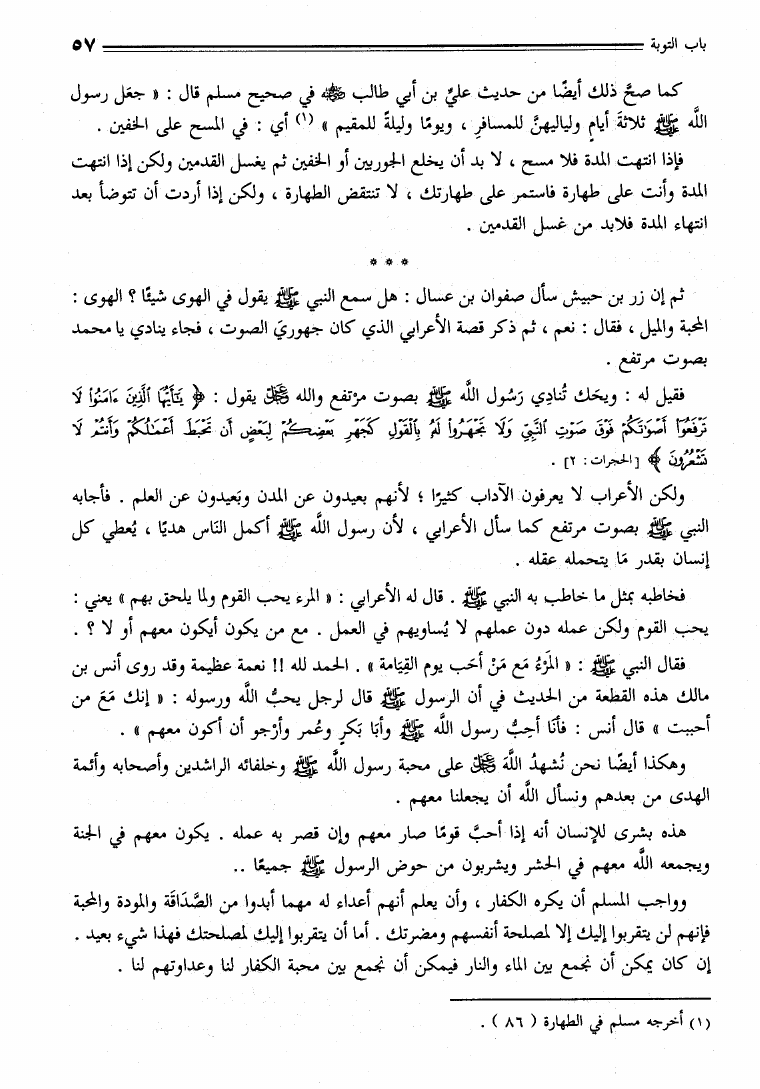 باب التوبة ٥٧
كما صحَّ ذلك أيضًا من حديث عليِّ بن أبي طالب ﵁ في صحيح مسلم قال : « جعَل رسول
اللَّه ﷺ ثلاثةَ أيامٍ ولياليهنَّ للمسافرِ ، ويومًا وليلةً للمقيم » (١) أي : في المسح على الخفين .
فإذا انتهت المدة فلا مسح ، لا بد أن يخلع الجوربين أو الخفين ثم يغسل القدمين ولكن إذا انتهت
المدة وأنت على طهارة فاستمر على طهارتك ، لا تنتقض الطهارة ، ولكن إذا أردت أن تتوضأ بعد
انتهاء المدة فلابد من غسل القدمين .
* * *
ثم إن زر بن حبيش سأل صفوان بن عسال : هل سمع النبي ﷺ يقول في الهوى شيئًا ؟ الهوى :
المحبة والميل ، فقال : نعم ، ثم ذكر قصة الأعرابي الذي كان جهوريَ الصوت ، فجاء ينادي يا محمد
بصوت مرتفع .
فقيل له : ويحَك تُنادِي رَسُول اللَّه ﷺ بصوت مرْتفع والله ﷿ يقول : ﴿ يَٰٓأَيُّهَا ٱلَّذِينَ ءَامَنُوا۟ لَا
تَرْفَعُوٓا۟ أَصْوَٰتَكُمْ فَوْقَ صَوْتِ ٱلنَّبِيِّ وَلَا تَجْهَرُوا۟ لَهُۥ بِٱلْقَوْلِ كَجَهْرِ بَعْضِكُمْ لِبَعْضٍ أَن تَحْبَطَ أَعْمَٰلُكُمْ وَأَنتُمْ لَا
تَشْعُرُونَ ﴾ [الحجرات: ٢] .
ولكن الأعراب لا يعرفون الآداب كثيرًا ؛ لأنهم بعيدون عن المدن وبَعيدون عن العلم . فأجابه
النبي ﷺ بصوت مرتفع كما سأل الأعرابي ، لأن رسول اللَّه ﷺ أكمل النَاس هديًا ، يُعطي كل
إنسان بقدر مَا يتحمله عقله .
فخاطبه بمثل ما خاطب به النبي ﷺ . قال له الأعرابي : « المرء يحب القوم ولما يلحق بهم » يعني :
يحب القوم ولكن عمله دون عملهم لا يُساويهم في العمل . مع من يكون أيكون معهم أو لا ؟ .
فقال النبي ﷺ : « المَرْءُ مَع مَنْ أحَب يوم القِيَامة » . الحمد لله !! نعمة عظيمة وقد روى أنس بن
مالك هذه القطعة من الحديث في أن الرسول ﷺ قال لرجل يحبُّ اللَّه ورسوله : « إنك مَعَ من
أحببت » قال أنس : فأنَا أحِبُّ رسول اللَّه ﷺ وأبَا بَكرٍ وعُمر وأرْجو أن أكون معهم » .
وهكذا أيضًا نحن نُشهدُ اللَّهَ ﷿ على محبة رسول اللَّه ﷺ وخلفائه الراشدين وأصحابه وأئمة
الهدى من بعدهم ونسأل اللَّه أن يجعلنا معهم .
هذه بشرى للإنسان أنه إذا أحبَّ قومًا صار معهم وإن قصر به عمله . يكون معهم في الجنة
ويجمعه اللَّه معهم في الحشر ويشربون من حوض الرسول ﷺ جميعًا ..
وواجب المسلم أن يكره الكفار ، وأن يعلم أنهم أعداء له مهما أبدوا من الصَّدَاقَة والمودة والمحبة
فإنهم لن يتقربوا إليك إلا لمصلحة أنفسهم ومضرتك . أما أن يتقربوا إليك لمصلحتك فهذا شيء بعيد .
إن كان يمكن أن نجمع بين الماء والنار فيمكن أن نجمع بين محبة الكفار لنا وعداوتهم لنا .
(١) أخرجه مسلم في الطهارة ( ٨٦ ) .